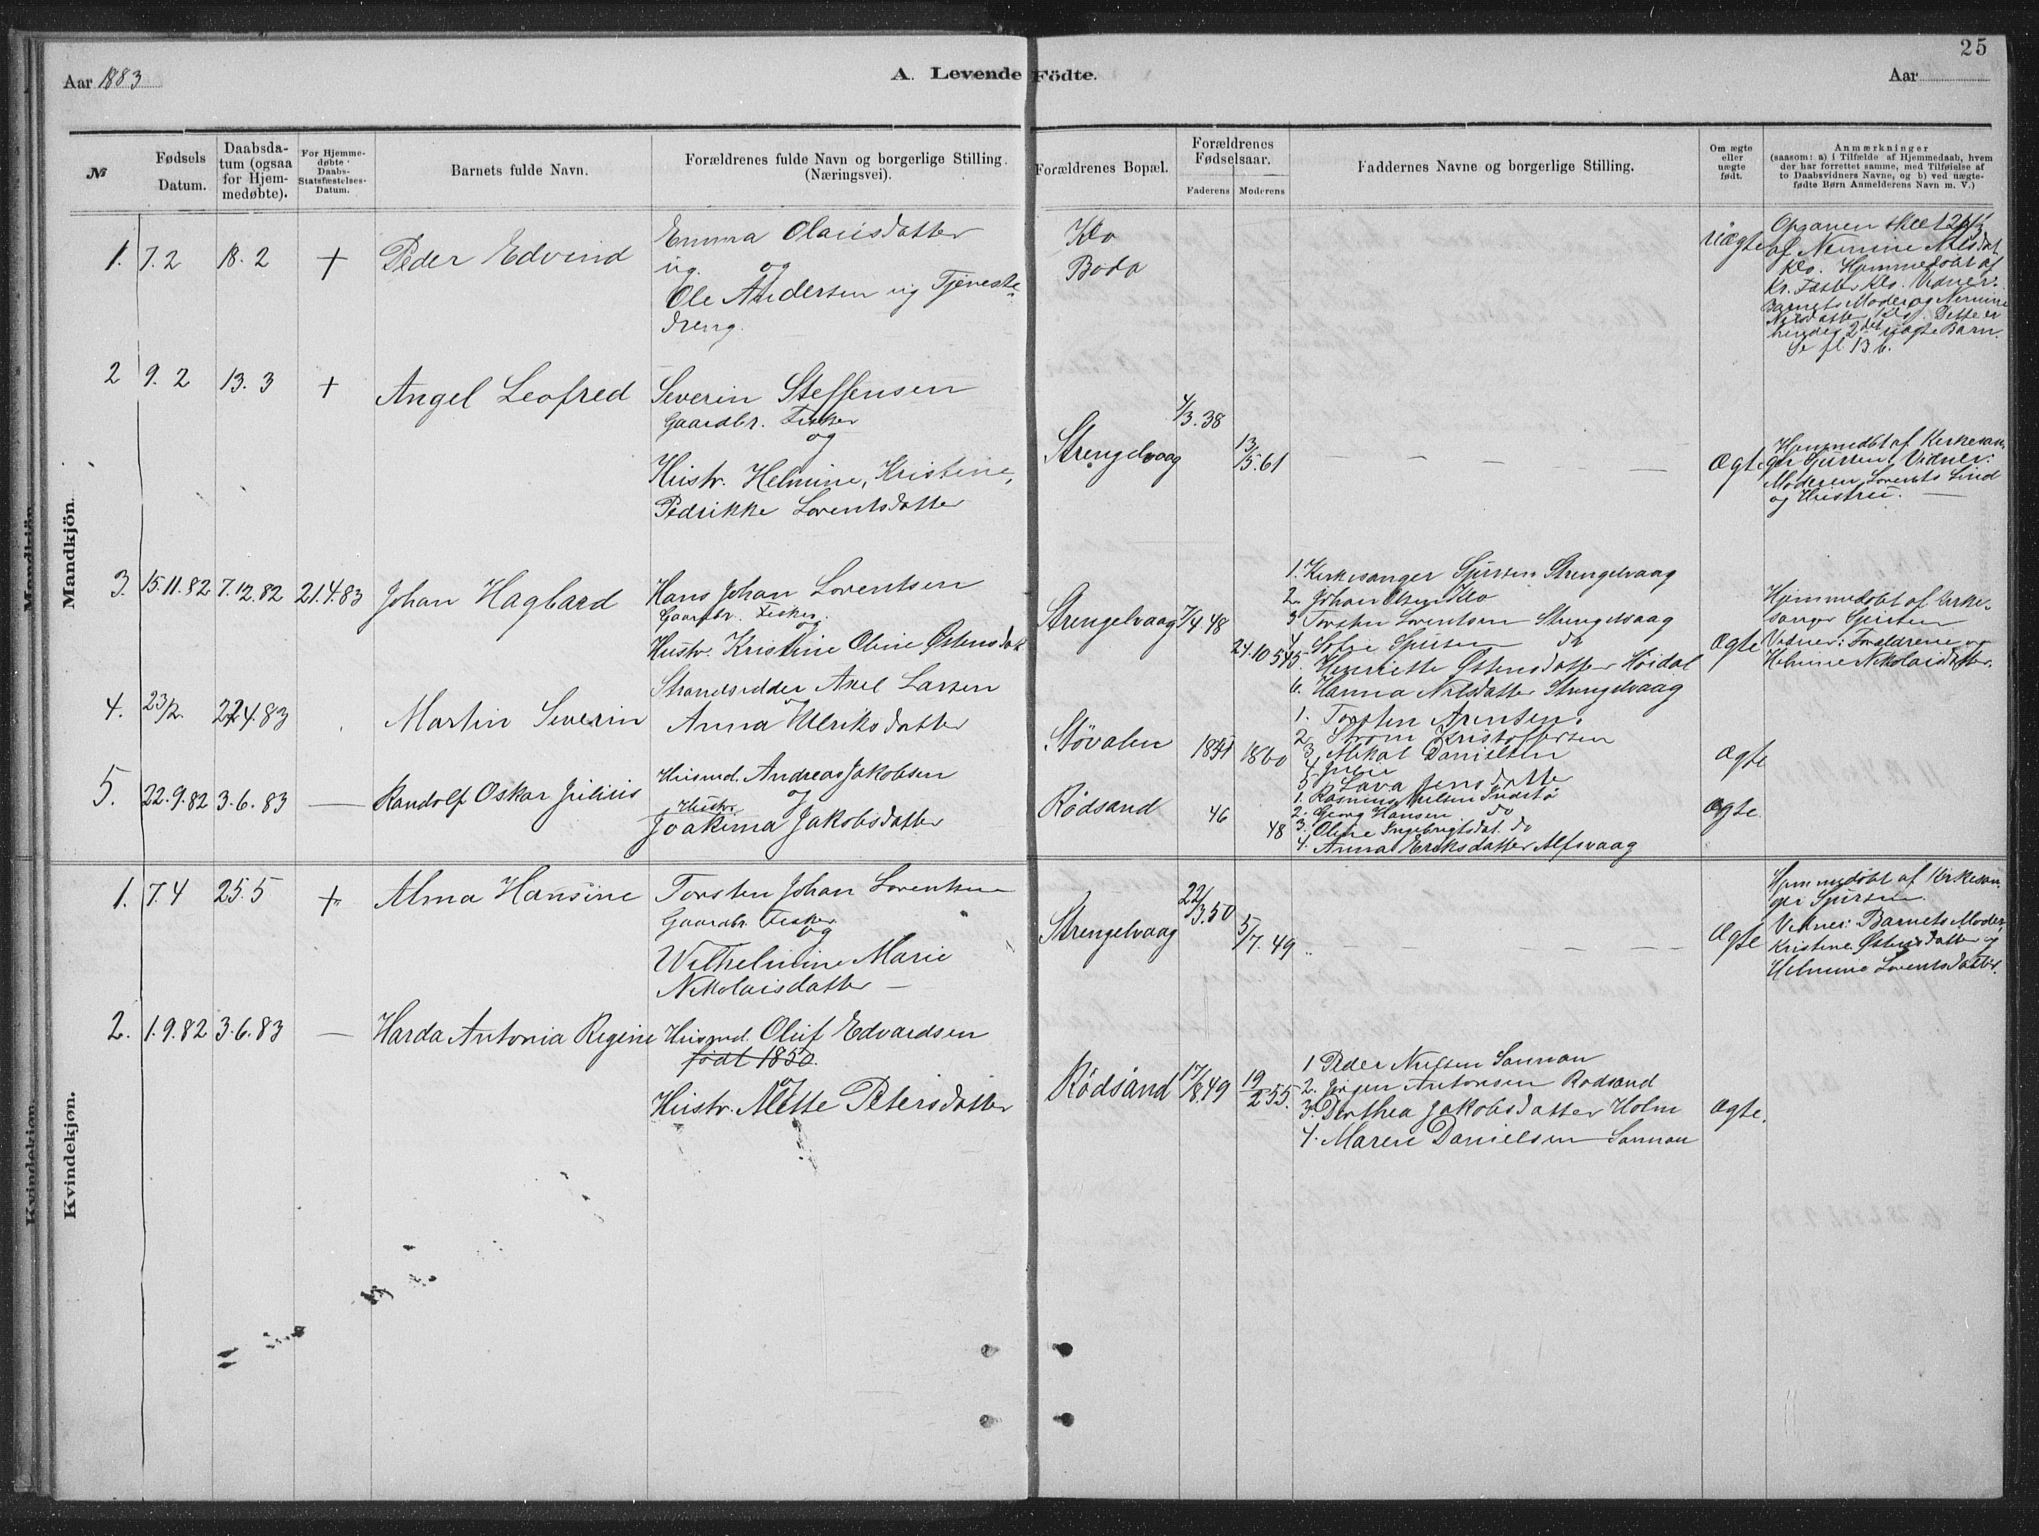 25
Aar 1883
A. Levende Födte.
Aar
№
Fødsels Datum.
Daabsdatum (ogsaa for Hjemmedøbte).
For Hjemmedøbte Daabs-Statsfæstelses-Datum.
Barnets fulde Navn.
Forældrenes fulde Navn og borgerlige Stilling. (Næringsvei).
Forældrenes Bopæl.
Forældrenes Fødselsaar.
Faderens
Moderens
Faddernes Navne og borgerlige Stilling.
Om ægte eller uægte født.
Anmærkninger
(saasom: a) i Tilfælde af Hjemmedaab, hvem
der har forrettet samme, med Tilføielse af
to Daabsvidners Navne, og b) ved uægte-
fødte Børn Anmelderens Navn m. V.)
Mandkjön.
1. 7.2 18.2 + Peder Edvind
Emma Olausdatter
ug. og
Ole Andersen ug Tjeneste-
dreng.
Klo
Bodø
uægte
af Nemine Nilsdat.
Klo. Hjemmedøbt af
Kr. Klo. Vidner:
Barnets Moder og Nemine
Nilsdatter Klo. Dette er
hendes 2det uægte Barn.
Se fl. 13 b.
2 9.2 13.3 + Angel Leofred
Severin Steffensen
Gaardbr. Fisker
og
Hustr. Helmine, Kristine,
Pedrikke Lorentsdatter
Strengelvaag
4/3.38
13/5.61
— — — — — —
Ægte
Hjemmedøbt af Kirkesan-
ger Sjursen. Vidner:
Moderen, Lorents Lind
og Hustru. —
3. 15.11.82 7.12.82 21.4.83 Johan Hagbard
Hans Johan Lorentsen
Gaardbr. Fisker
og
Hustr. Kristine Oline Østensdat
Strengelvaag 7/4 48
24.10 54
1. Kirkesanger Sjursen Strengelvaag
2. Johan Olsen Klo
3 Torsten Lorentsen Strengelvaag
4. Sofie Sjursen do
5. Henriette Østensdatter Høidal
6. Hanna Nilsdatter Strengelvaag
Ægte
Hjemmedøbt af Kirke-
sanger Sjursen
Vidner: Forældrene og
Helmine Nikolaisdatter.
4. 23/2. 22.4.83 Martin Severin
Strandsidder Axel Larsen
og
Anna Ulriksdatter
Støvalen 1860
1. Torsten Arentsen.
2. Strøm Kristoffersen
3. Mikal Danielsen
4. Julie
5. Lava Jensdatter
Ægte
5. 22.9.82 3.6.83 — Randolf Oskar Julius
Husmd. Andreas Jakobsen
og
Hustr.
Joakima Jakobsdatter
Rødsand 46 48
1. Rasmus Nilsen Indstø
2. Georg Hansen do
3. Oline Ingebrigtsdat. do
4. Anna Eriksdatter Alfsvaag
Ægte.
Kvindekjön.
1. 7.4 25.5 + Alma Hansine
Torsten Johan Lorentsen
Gaardbr. Fisker
og
Wilhelmine Marie
Nikolaisdatter —
Strengelvaag
22/3.50
5/7.49
— — — — —
Ægte
Hjemmedøbt af Kirkesan-
ger Sjursen.
Vidner: Barnets Moder,
Kristine Østensdatter og
Helmine Lorentsdatter.
2. 1.9.82 3.6.83 — Harda Antonia Regine
Husmd. Oluf Edvardsen
født 1850.
og
Hustr. Mette Petersdatter
Rødsand 17/8.49 19/2 55.
1 Peder Nilsen Sannan
2. Jørgen Antonsen Rødsand
3. Dorthea Jakobsdatter Holm
4. Maren Danielsen Sannan
Ægte.